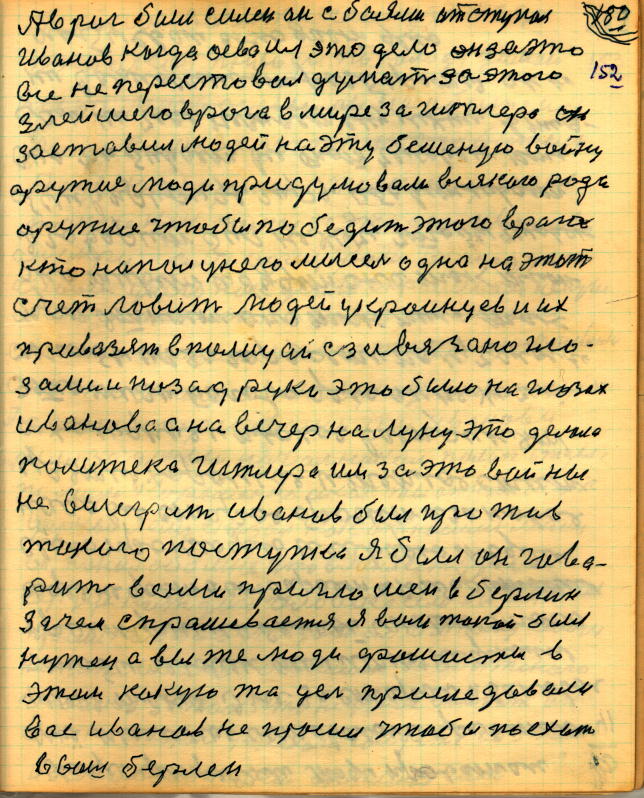 180
152
А враг был силен он с боями отступал
Иванов когда освоил это дело он за это
все не перестовал думать за этого
злейшего врага в мире за гитлера он
заставил людей на эту бешеную войну
другие люди придумовали всякого рода
оружие чтобы победит этого врага
кто напал у него мисел одна на этот
счет ловит людей украинцев и их
привозят в полицаи с завязано гло-
зами и позад руки это было на глозах
иванова а на вечер на луну это делала
политека Гитлера им за это войны
не выеграт иванов был против
такого поступка Я был он гова-
рит вами приглошен в берлин
Зачем спрашевается я вам такой был
нужен а вы же люди фошисты в
этом какую та цел приследовали
вас иванов не просил чтобы поехат
в ваш берлен